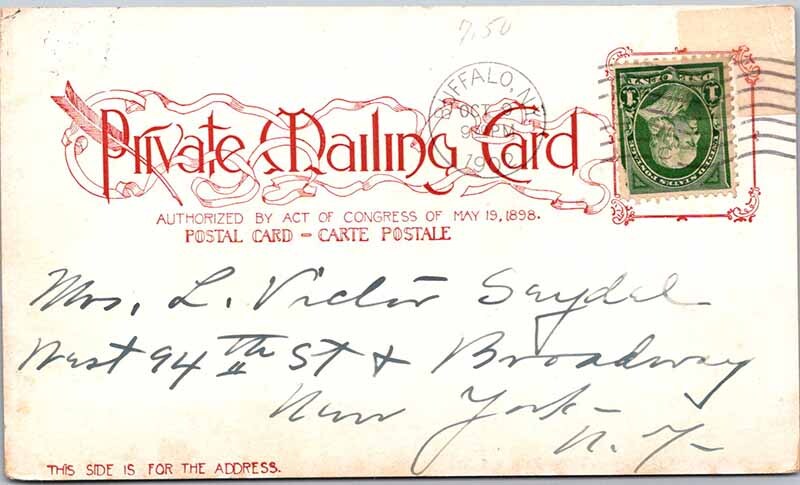 7.50
BUFFALO, N.Y.
OCT
9 PM
Private Mailing Card
AUTHORIZED BY ACT OF CONGRESS OF MAY 19, 1898.
POSTAL CARD – CARTE POSTALE
ONE CENT
1 1
UNITED STATES POSTAGE
Mrs. L. Victor Seydel
West 94th St & Broadway
New York –
N.Y–
THIS SIDE IS FOR THE ADDRESS.